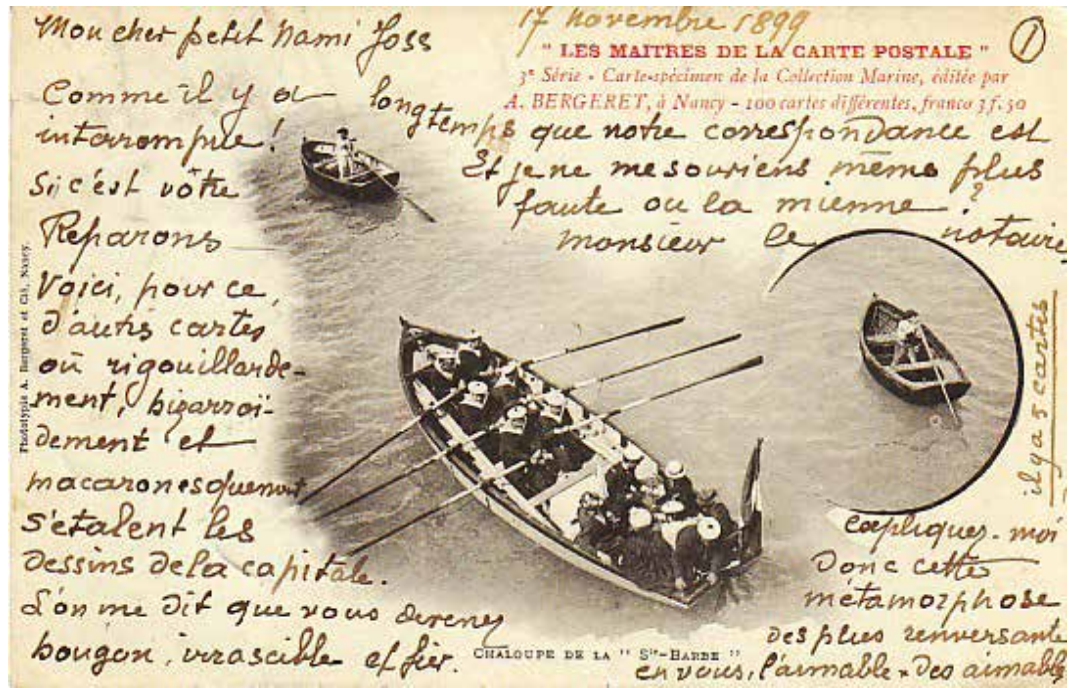 17 novembre 1899
①
Mon cher petit Nami Joss
" LES MAITRES DE LA CARTE POSTALE "
3e Série - Carte-spécimen de la Collection Marine, éditée par
A. BERGERET, à Nancy - 100 cartes différentes, franco 3 f. 50
Comme il y a longtemps que notre correspondance est
interrompue! Et je ne me souviens même plus
si c'est vôtre faute ou la mienne?
Reparons monsieur le notaire,
Voici, pour ce,
d'autis cartes
où rigouillarde-
ment, bizarroï-
dement et
macaronesquement
s'étalent les
dessins de la capitale.
L'on me dit que vous devenez
bougon, irrascible et fier.
Expliquez-moi
Donc cette
métamorphose
des plus renversante
en vous, l'aimable des aimables
il y a 5 cartes
CHALOUPE DE LA " Ste-BARBE "
Phototypie A. Bergeret et Cie, Nancy.